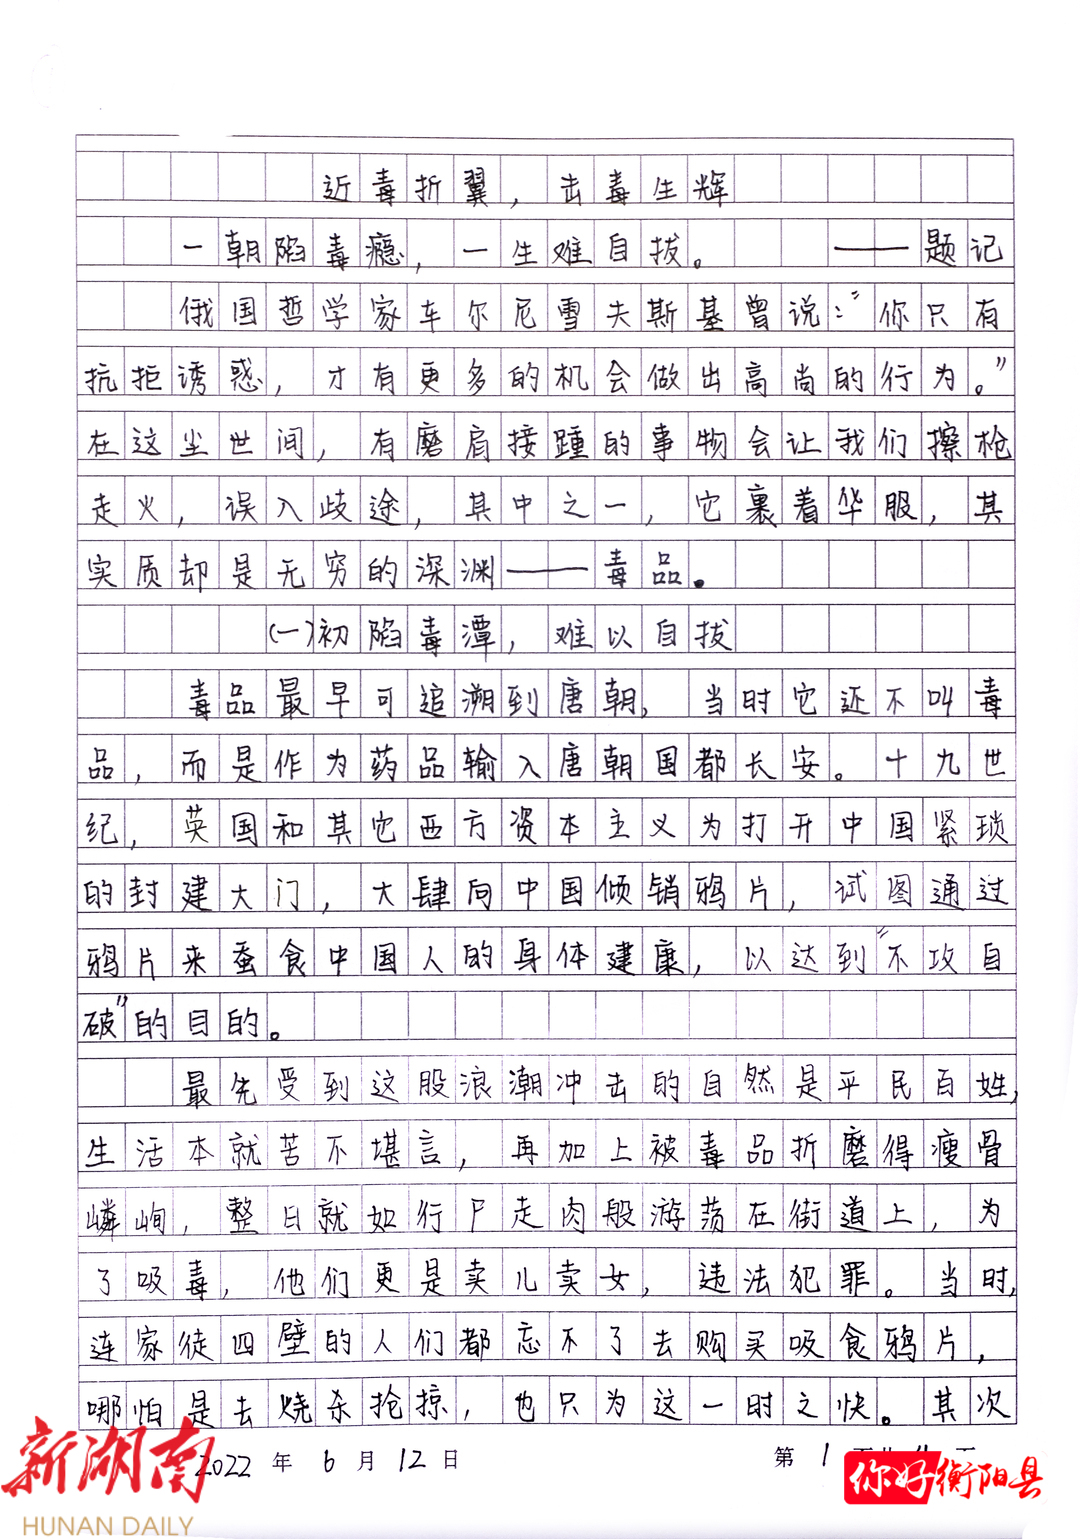 近毒折翼，击毒生辉
一朝陷毒瘾，一生难自拔。——题记
俄国哲学家车尔尼雪夫斯基曾说：“你只有
抗拒诱惑，才有更多的机会做出高尚的行为。”
在这尘世间，有磨肩接踵的事物会让我们擦枪
走火，误入歧途，其中之一，它裹着华服，其
实质却是无穷的深渊——毒品。
（一）初陷毒潭，难以自拔
毒品最早可追溯到唐朝，当时它还不叫毒
品，而是作为药品输入唐朝国都长安。十九世
纪，英国和其它西方资本主义为打开中国紧琐
的封建大门，大肆向中国倾销鸦片，试图通过
鸦片来蚕食中国人的身体建康，以达到“不攻自
破”的目的。
最先受到这股浪潮冲击的自然是平民百姓，
生活本就苦不堪言，再加上被毒品折磨得瘦骨
嶙峋，整日就如行尸走肉般游荡在街道上，为
了吸毒，他们更是卖儿卖女，违法犯罪。当时，
连家徒四壁的人们都忘不了去购买吸食鸦片，
哪怕是去烧杀抢掠，也只为这一时之快。其次
2022 年 6 月 12 日 第 1
新湖南
HUNAN DAILY
你好衡阳县